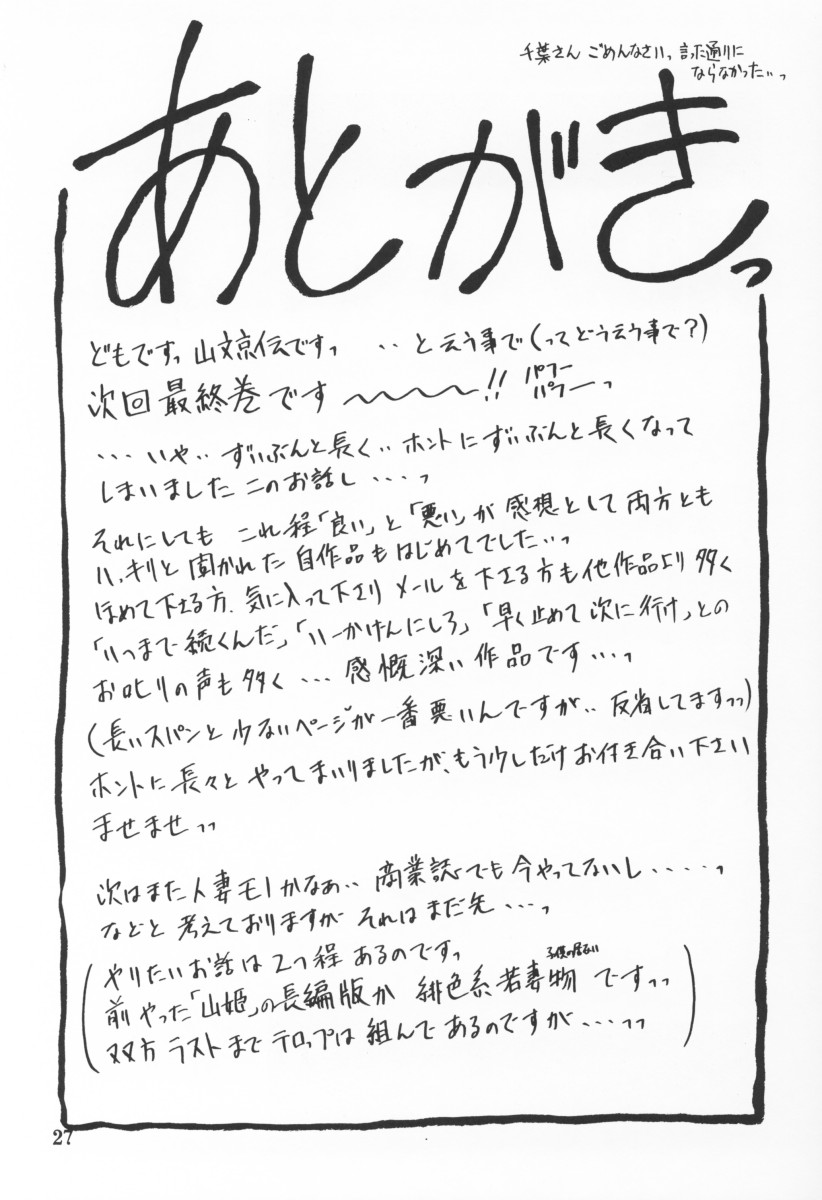 千葉さん ごめんなさいっ 言った通りに
ならなかったいっ
あとがきっ
どもですっ 山文京伝ですっ ‥と云う事で(ってどう云う事で?)
次回最終巻です〜〜〜〜!! パフー
パフーっ
・・・いや‥ ずいぶんと長く‥ホントにずいぶんと長くなって
しまいましたこのお話し・・・っ
それにしても これ程「良い」と「悪い」が 感想として両方とも
ハッキリと聞かれた自作品もはじめてでした‥っ
ほめて下さる方、気に入って下さり メールを下さる方も他作品より多く
「いつまで続くんだ」「いーかげんにしろ」「早く止めて次に行け」との
お叱りの声も多く・・・感慨深い作品です・・・っ
(長いスパンと少ないページが一番悪いんですが‥ 反省してますっっ)
ホントに長々と やってまいりましたが、もう少しだけお付き合い下さい
ませませっっ
次はまた人妻モノかなぁ‥ 商業誌でも今やってないし・・・・っ
などと 考えておりますが それはまだ先・・・っ
やりたいお話は2つ程あるのですっ
前やった「山姫」の長編版か 緋色系若妻物 ですっっ
双方 ラストまでテロップは 組んであるのですが・・・っっ
27